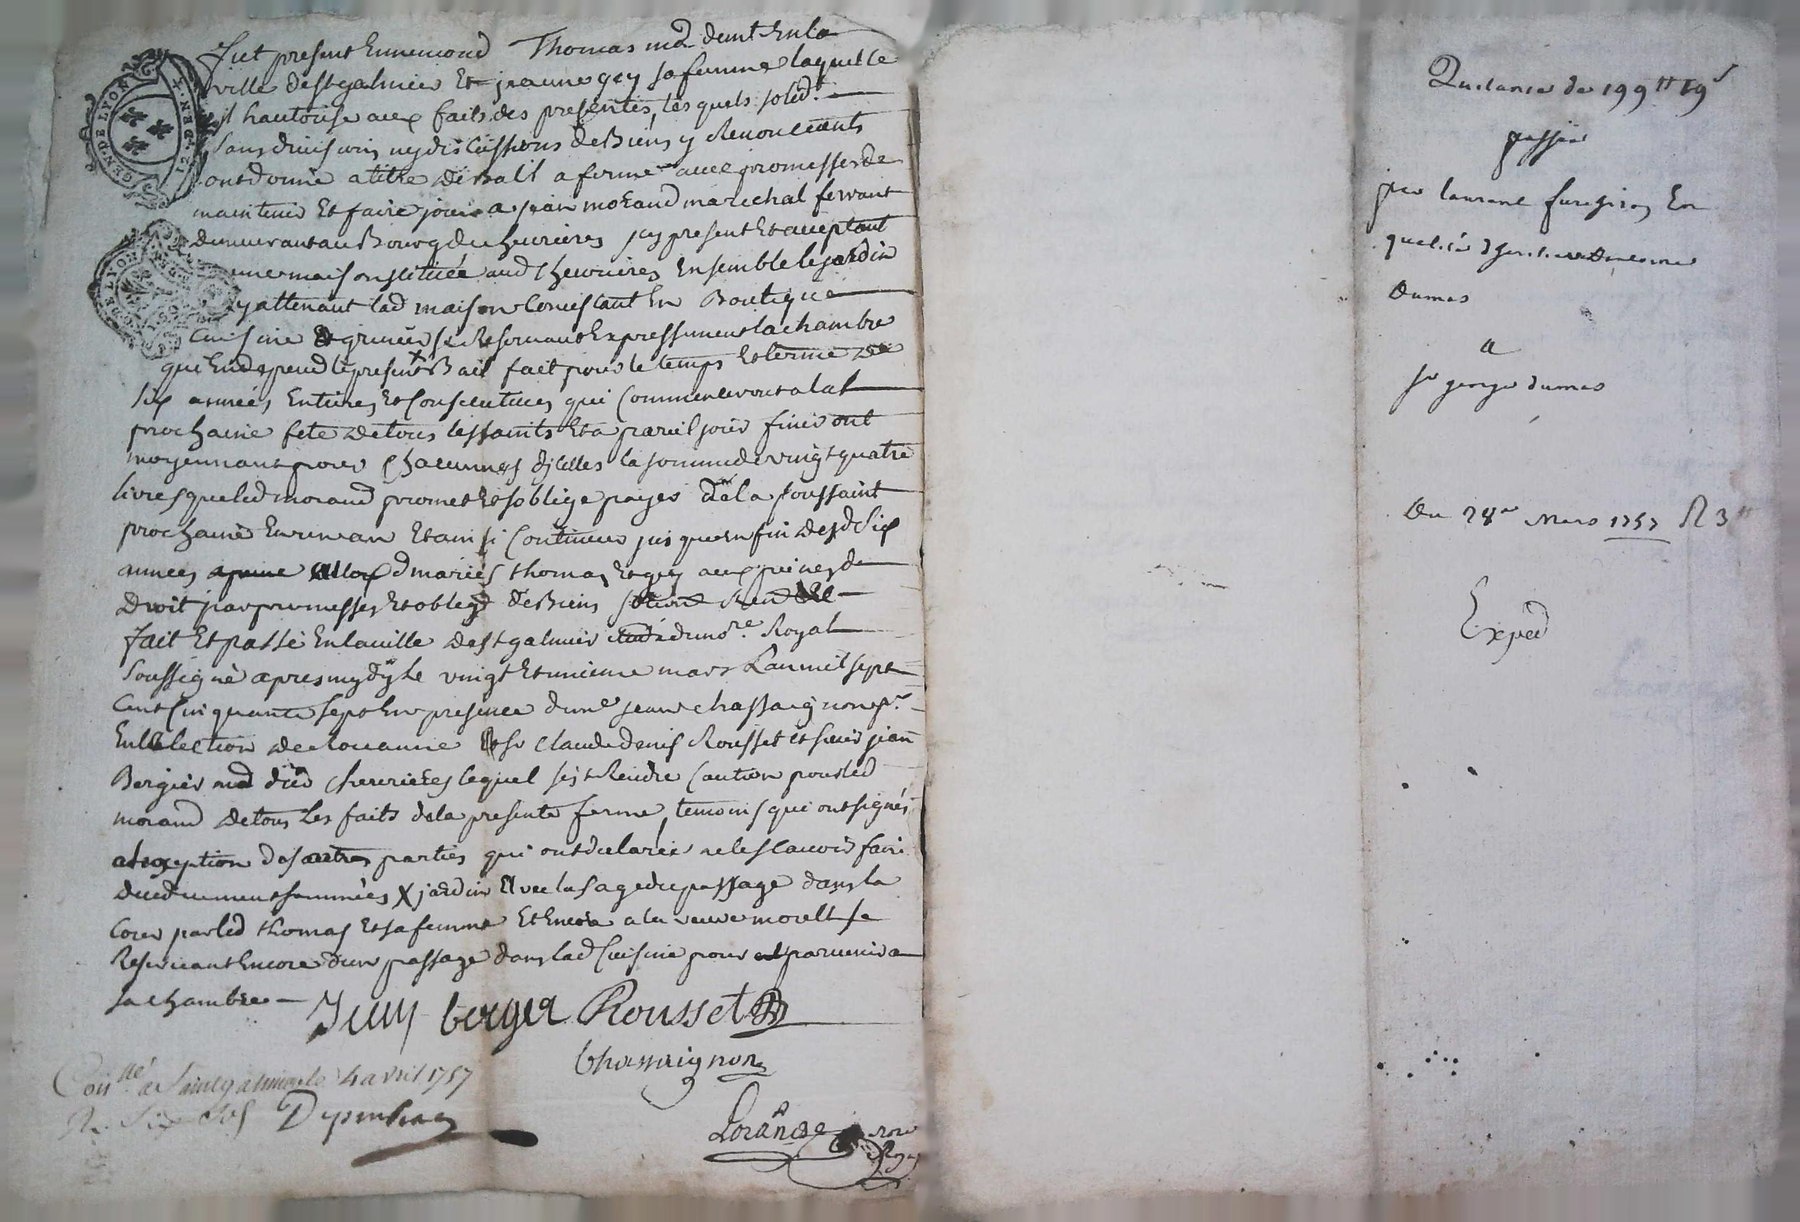 GEN. DE LYON
Fut présent Ennemond Thomas md demt En la
ville de st galmier Et jeanne gey sa femme laquelle
il hautorise aux faits des présentes, les quels solidt
sans division ny discussions de Biens y Renonceants
ont donné a titre de Bail a ferme avec promesses de
maintenir Et faire jouir a jean morand maréchal ferrant
demeurant au Bourg de chevrieres icy present Et acceptant
une maison scituée aud Chevrieres Ensemble le jardin
y attenant lad maison Consistant En Boutique
Cuisine Et grenier se Reservant Expressement la chambre
qui En depend le présent Bail fait pour le temps Et terme de
six années Entieres Et Consecutives qui Commenceront a la
prochaine fete de tous les saints Et a pareil jour finiront
moyennant pour Chacunnes d'jcelles la somme de vingt quatre
livres que led morand promet Et s'oblige payer de la Toussaint
prochaine En un an Et ainsi Continuer jusqu'en fin desd six
années auxd mariés thomas Et gey aux peines de
Droit par promesses Et obligd de Biens
fait Et passé En la ville de st galmier Etude du nore Royal
soussigné apres mydy le vingt Et unieme mars L'an mil sept
Cent Cinquante sept En presence de me jean chassaignon pr
En l'Election de Roüanne Et sr Claude denis Rousset et sieur jean
Bergier md dud chevrieres lequel s'est Rendre Caution pour led
morand de tous les faits de la presente ferme, temoins qui ont signés
a l'exception des autres parties qui ont declarés ne le sçavoir faire
de ce duement sommées X jardin Avec l'usage du passage dans la
Cour par led thomas Et sa femme Et Encore a la veuve morell se
Reservant Encore d'un passage dans lad Cuisine pour parvenir a
sa chambre
Jean berger Rousset
Chassaignon
Conllé a Saint galmier le 4 avril 1757
R. Six sols
Lorande nore Royal
Quitance de 199 tt 19 s
passée
par laurent En
qualité
Dumas
a
sr george dumas
Du 28e Mars 1757 R 3 tt
Exped